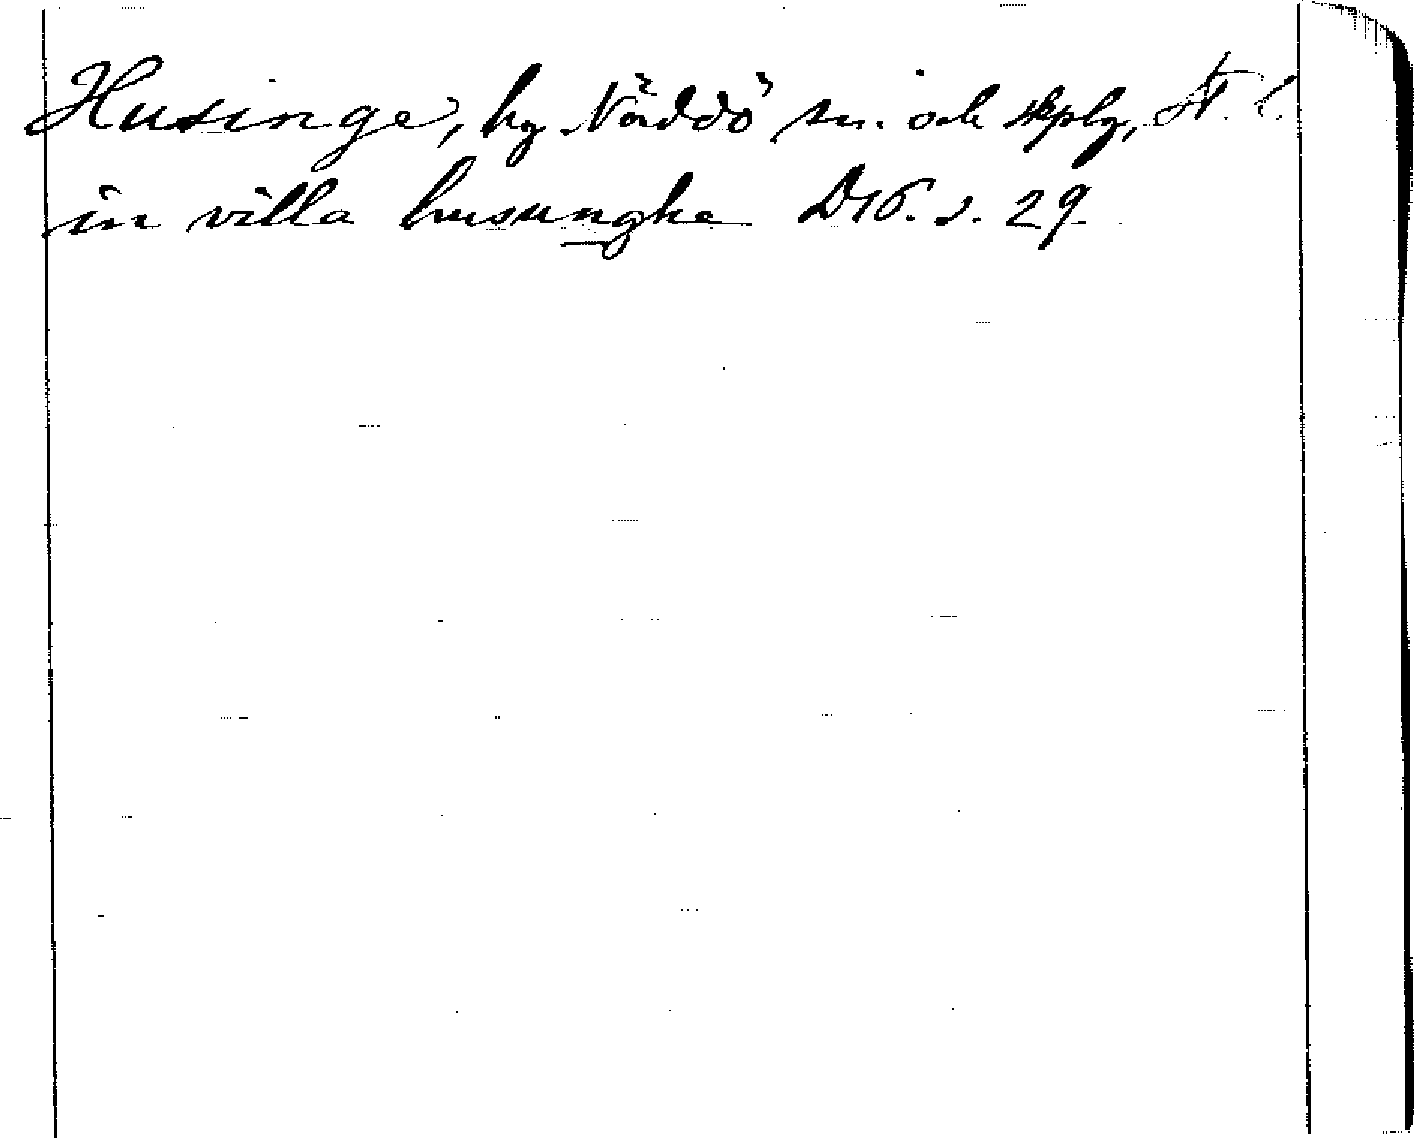 Husinge, by Näddö sn. och skplg, St. l.
in villa husunghe D16. s. 29